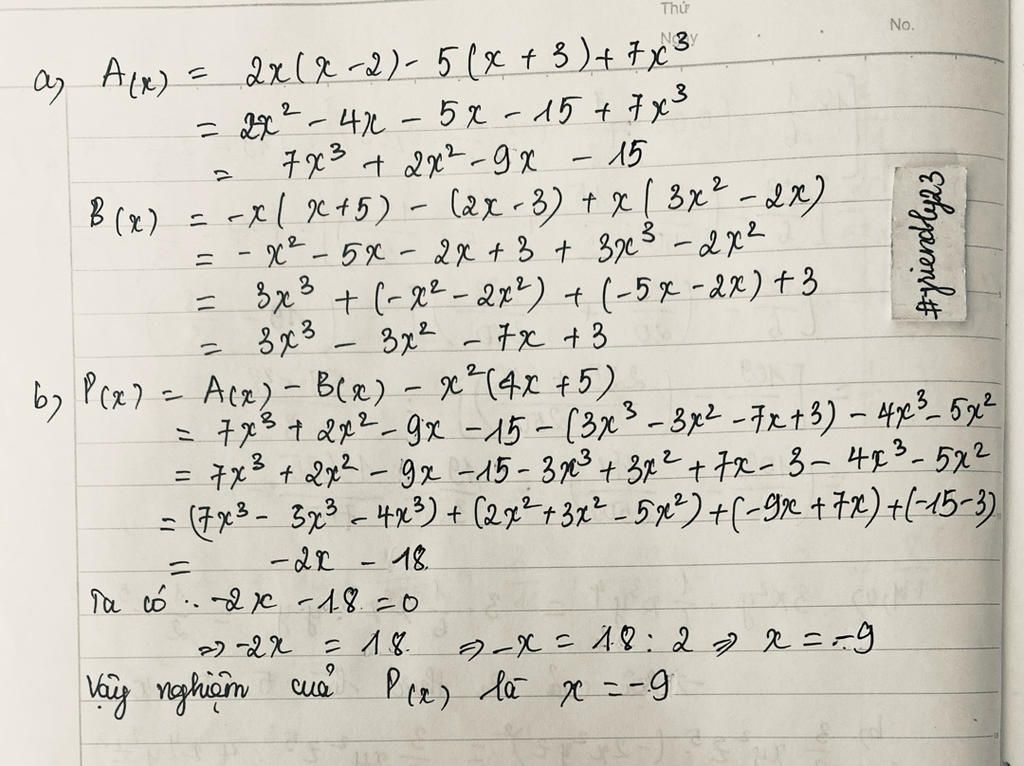 Thứ
Ngày
No.
a) A(x) = 2x(x - 2) - 5(x + 3) + 7x³
= 2x² - 4x - 5x - 15 + 7x³
= 7x³ + 2x² - 9x - 15
B(x) = -x(x+5) - (2x - 3) + x(3x² - 2x)
= -x² - 5x - 2x + 3 + 3x³ - 2x²
= 3x³ + (-x² - 2x²) + (-5x - 2x) + 3
= 3x³ - 3x² - 7x + 3
#friendly23
b) P(x) = A(x) - B(x) - x²(4x + 5)
= 7x³ + 2x² - 9x - 15 - (3x³ - 3x² - 7x + 3) - 4x³ - 5x²
= 7x³ + 2x² - 9x - 15 - 3x³ + 3x² + 7x - 3 - 4x³ - 5x²
= (7x³ - 3x³ - 4x³) + (2x² + 3x² - 5x²) + (-9x + 7x) + (-15 - 3)
= -2x - 18
Ta có : -2x - 18 = 0
=> -2x = 18 => -x = 18 : 2 => x = -9
Vậy nghiệm cuả P(x) là x = -9